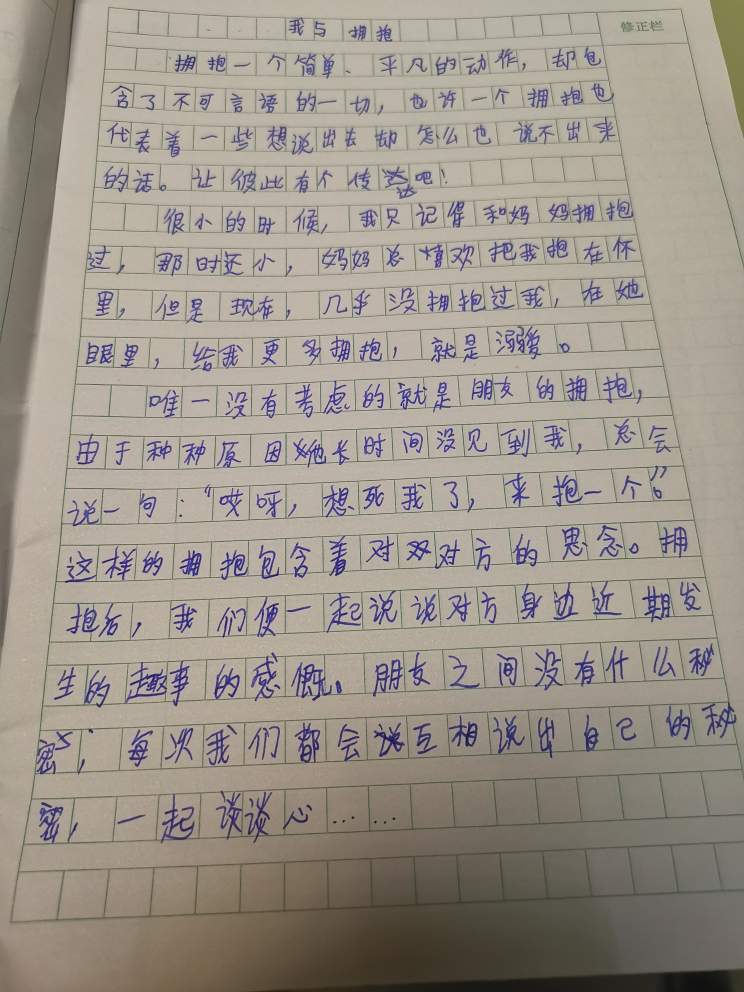 我与拥抱
修正栏
拥抱一个简单、平凡的动作，却包
含了不可言语的一切，也许一个拥抱也
代表着一些想说出去却怎么也说不出来
的话。让彼此有个传达吧！
很小的时候，我只记得和妈妈拥抱
过，那时还小，妈妈总喜欢把我抱在怀
里，但是现在，几乎没拥抱过我，在她
眼里，给我更多拥抱，就是溺爱。
唯一没有考虑的就是朋友的拥抱，
由于种种原因她长时间没见到我，总会
说一句：“哎呀，想死我了，来抱一个”。
这样的拥抱包含着对双对方的思念。拥
抱后，我们便一起说说对方身边近期发
生的趣事的感慨。朋友之间没有什么秘
密，每次我们都会说互相说出自己的秘
密，一起谈谈心……